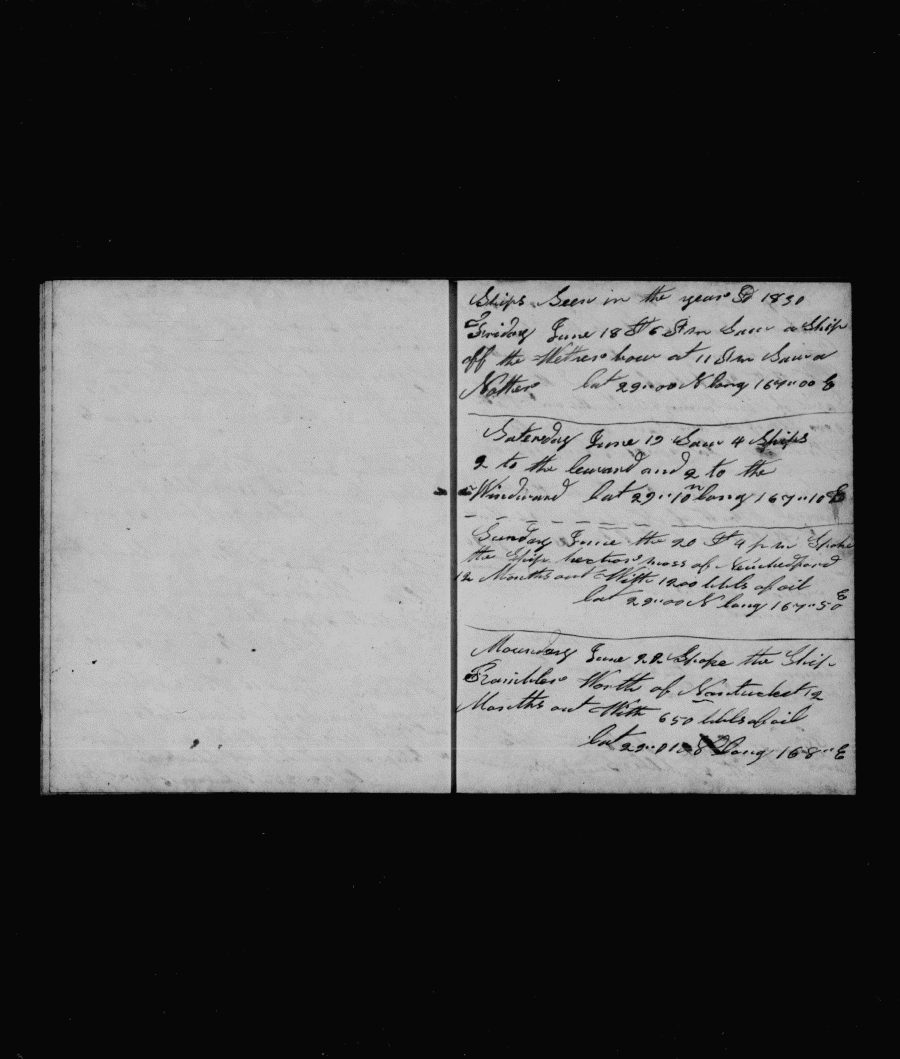 Ships Seen in the year 1830
Friday June 18 at 6 Pm Saw a Ship
off the Wether bow at 11 Am Saw a
Nother lat 29"00 N long 167"00 E
Saterday June 19 Saw 4 Ships
2 to the leward and 2 to the
Windward lat 29"10 N long 167"10 E
Sunday June the 20 at 4 pm Spoke
the Ship hector moss of Newbedford
12 Months out With 1200 bbls of oil
lat 29"00 N long 167"50 E
Mounday June 22 Spoke the Ship
Rambler Worth of Nantucket 12
Months out With 650 bbls of oil
lat 29" long 168" E